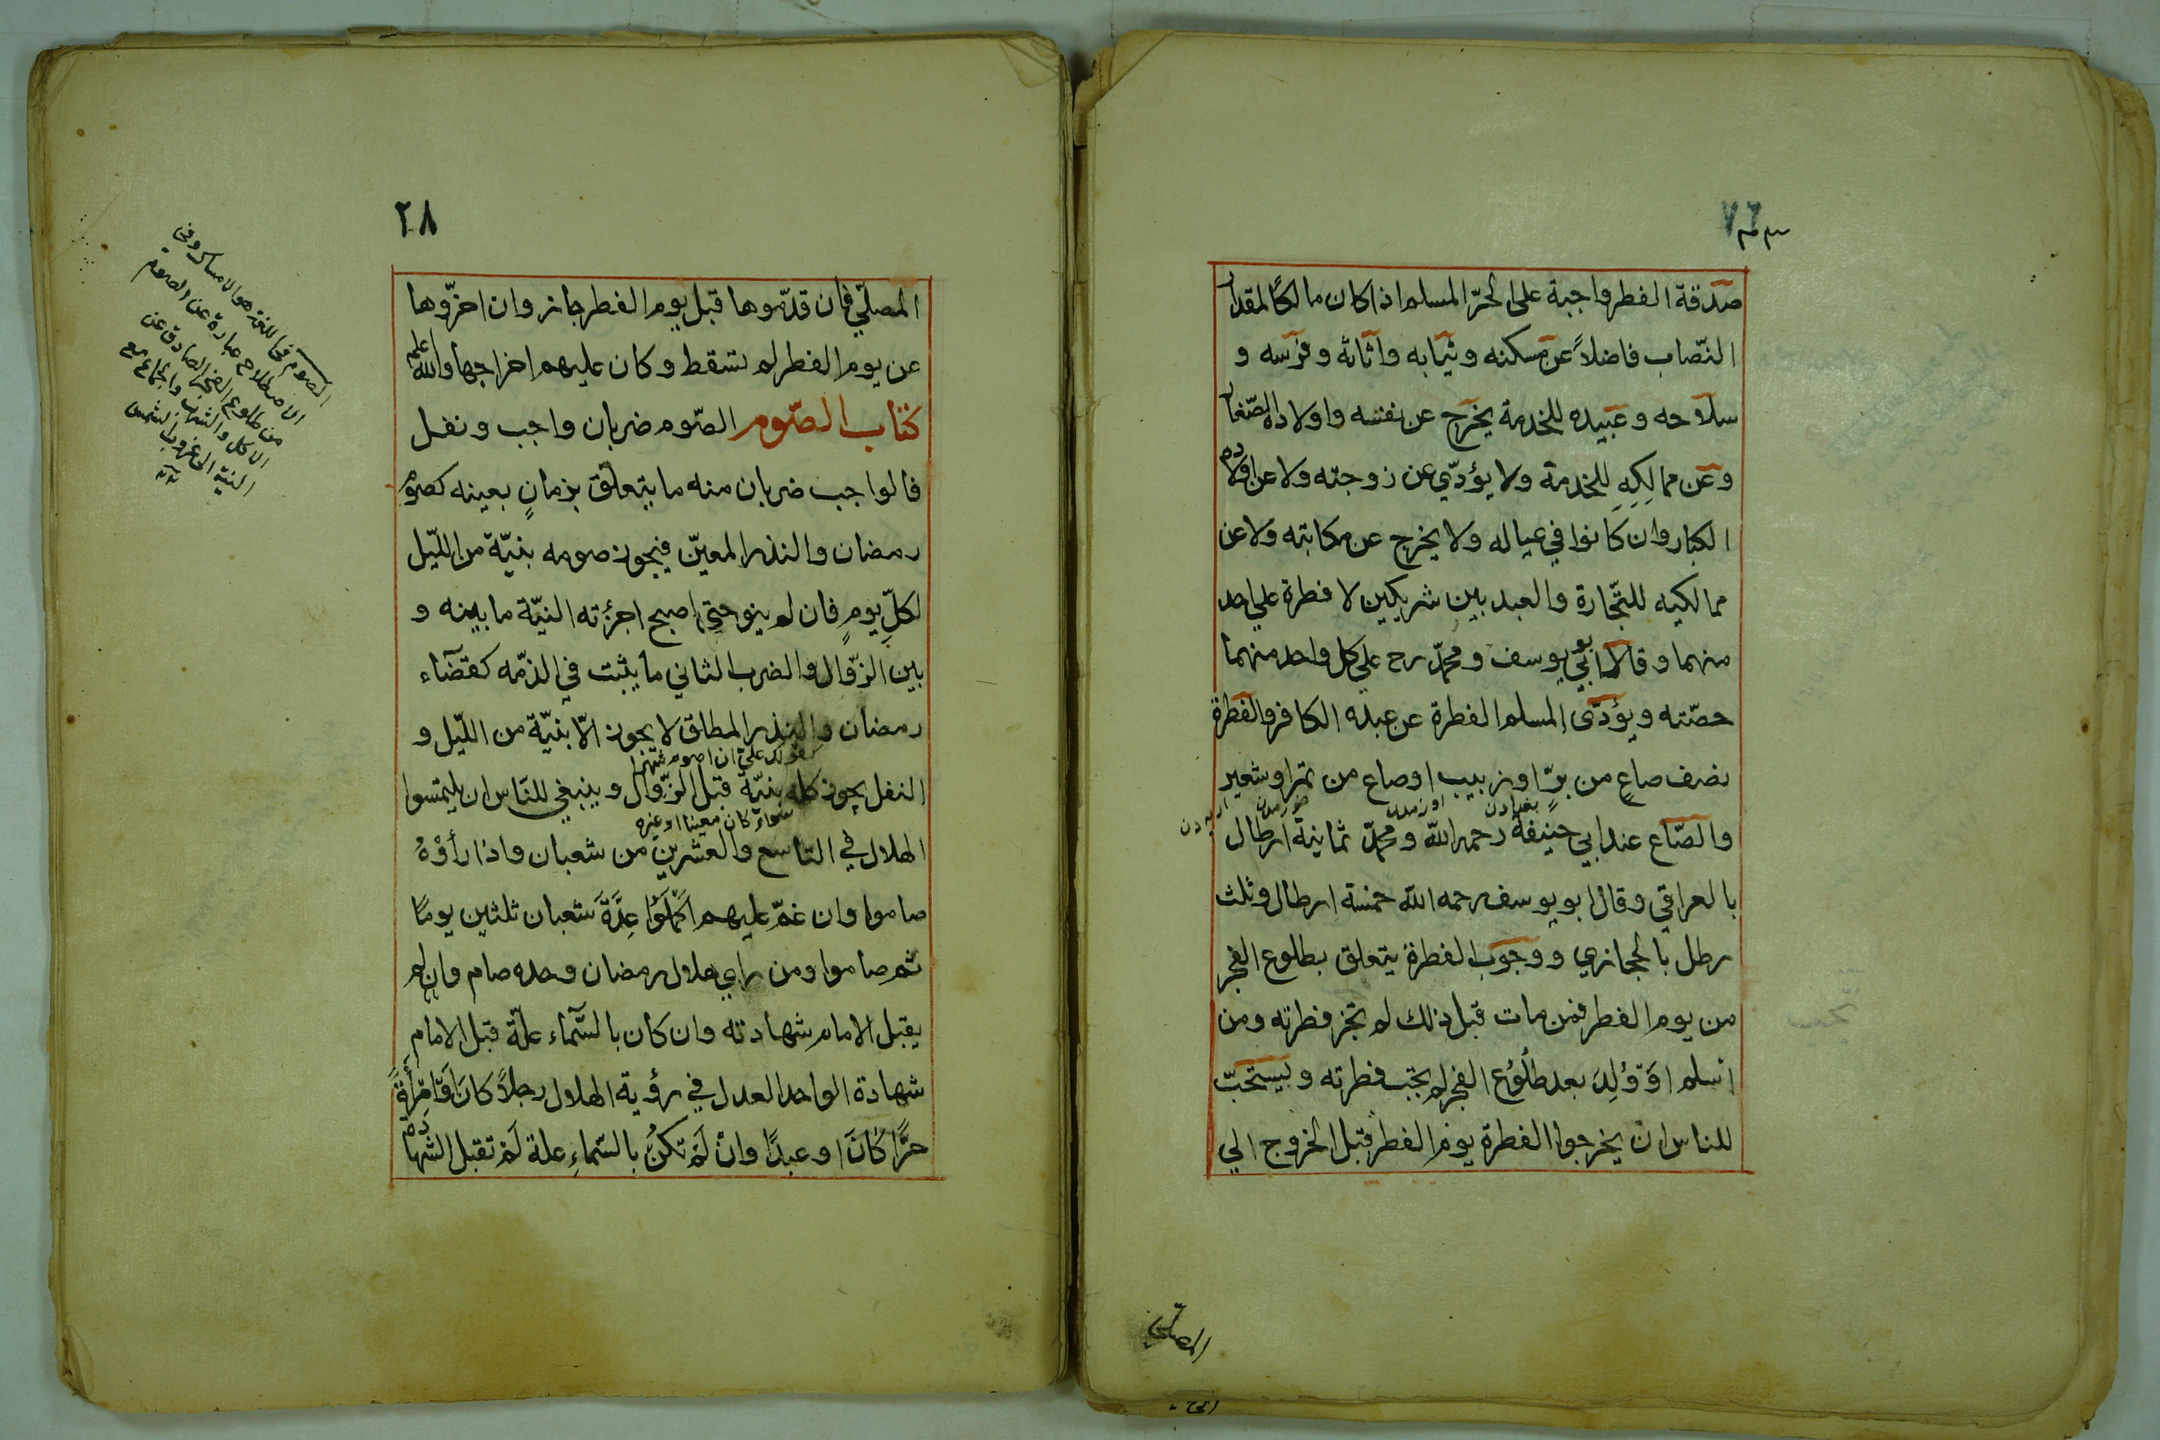 صدقة الفطر واجبة على الحرّ المسلم اذا كان مالكًا لمقدار
النّصاب فاضلاً عن مسكنه وثيابه وآثاثه وفرسه و
سلاحه وعبيده للخدمة يخرج عن نفسه واولاده الصّغار
وعن مماليكه للخدمة ولا يؤدّي عن زوجته ولا عن اولاده
الكبار وان كانوا في عياله ولا يخرج عن مكاتبه ولا عن
مماليكيه للتّجارة والعبد بين شريكين لا فطرة على احد
منهما وقالا ابي يوسف ومحمّد رح على كل واحد منهما
حصّته ويؤدّى المسلم الفطرة عن عبده الكافر والفطرة
نصف صاعٍ من برّ اوزبيب اوصاع من تمر اوشعير
والصّاع عند ابي حنيفة رحمه اللّه ومحمّد ثمانية ارطال
بالعراقي وقال ابو يوسف رحمه اللّه خمسة ارطال وثلث
رطل بالحجازي ووجوب الفطرة يتعلق بطلوع الفجر
من يوم الفطر فمن مات قبل ذلك لم تجز فطرته ومن
اسلم اَوْ وُلِدَ بعد طُلُوُع الفجر لم يجب فطرته ويستحبّ
للناس انْ يخرجوا الفطرة يوم الفطر قبل الخروج الي
المصلّي
٢٨
المصلّي فان قدّموها قبل يوم الفطر جاز وان اخرّوها
عن يوم الفطر لم تسقط وكان عليهم اخراجها واللّه اعلم
كتاب الصّوم الصّوم ضربان واجب ونفل
فالواجب ضربان منه ما يتعلّق بزمانٍ بعينه كصوم
رمضان والنذر المعيّن فيجوز صومه بنيّة من اللّيل
لكلِّ يومٍ فان لم ينو حتى اصبح اجزئته النيّة ما بينه و
بين الزّوال والضرب الثاني ما يثبت في الذمّه كقضآء
رمضان والنذر المطلق لا يجوز الّا بنيّة من اللّيل و
كقولك علىّ ان اصوم شهرا
النفل يجوز كله بنيّة قبل الزّوال وينبغي للنّاس ان يلتمسوا
سوآء كان معينا او غيره
الهلال في التاسع والعشرين من شعبان واذا رأَوْهُ
صاموا وان غمّ عليهم اكْمَلَوُا عِدَّةَ شعبان ثلثين يومًا
ثم صاموا ومن راي هلال رمضان وحده صام وان لم
يقبل الامام شهادته وان كان بالسَّمآء علّة قبل الامام
شهادة الواحد العدل في رؤية الهلال رجلاً كانَ اَوْ اِمْرأَةً
حرًّا كَانَ او عبدًا وانْ لَمْ تكنُ بالسّماءِ علة لَمْ تقبل الشّهادة
الصّوم في اللغة هو الامساك وفي
الاصطلاح عبارة عن الصوم
من طلوع الفجر الصادق عن
الاكل والشرب والجماع مع
النية الى غروب الشمس